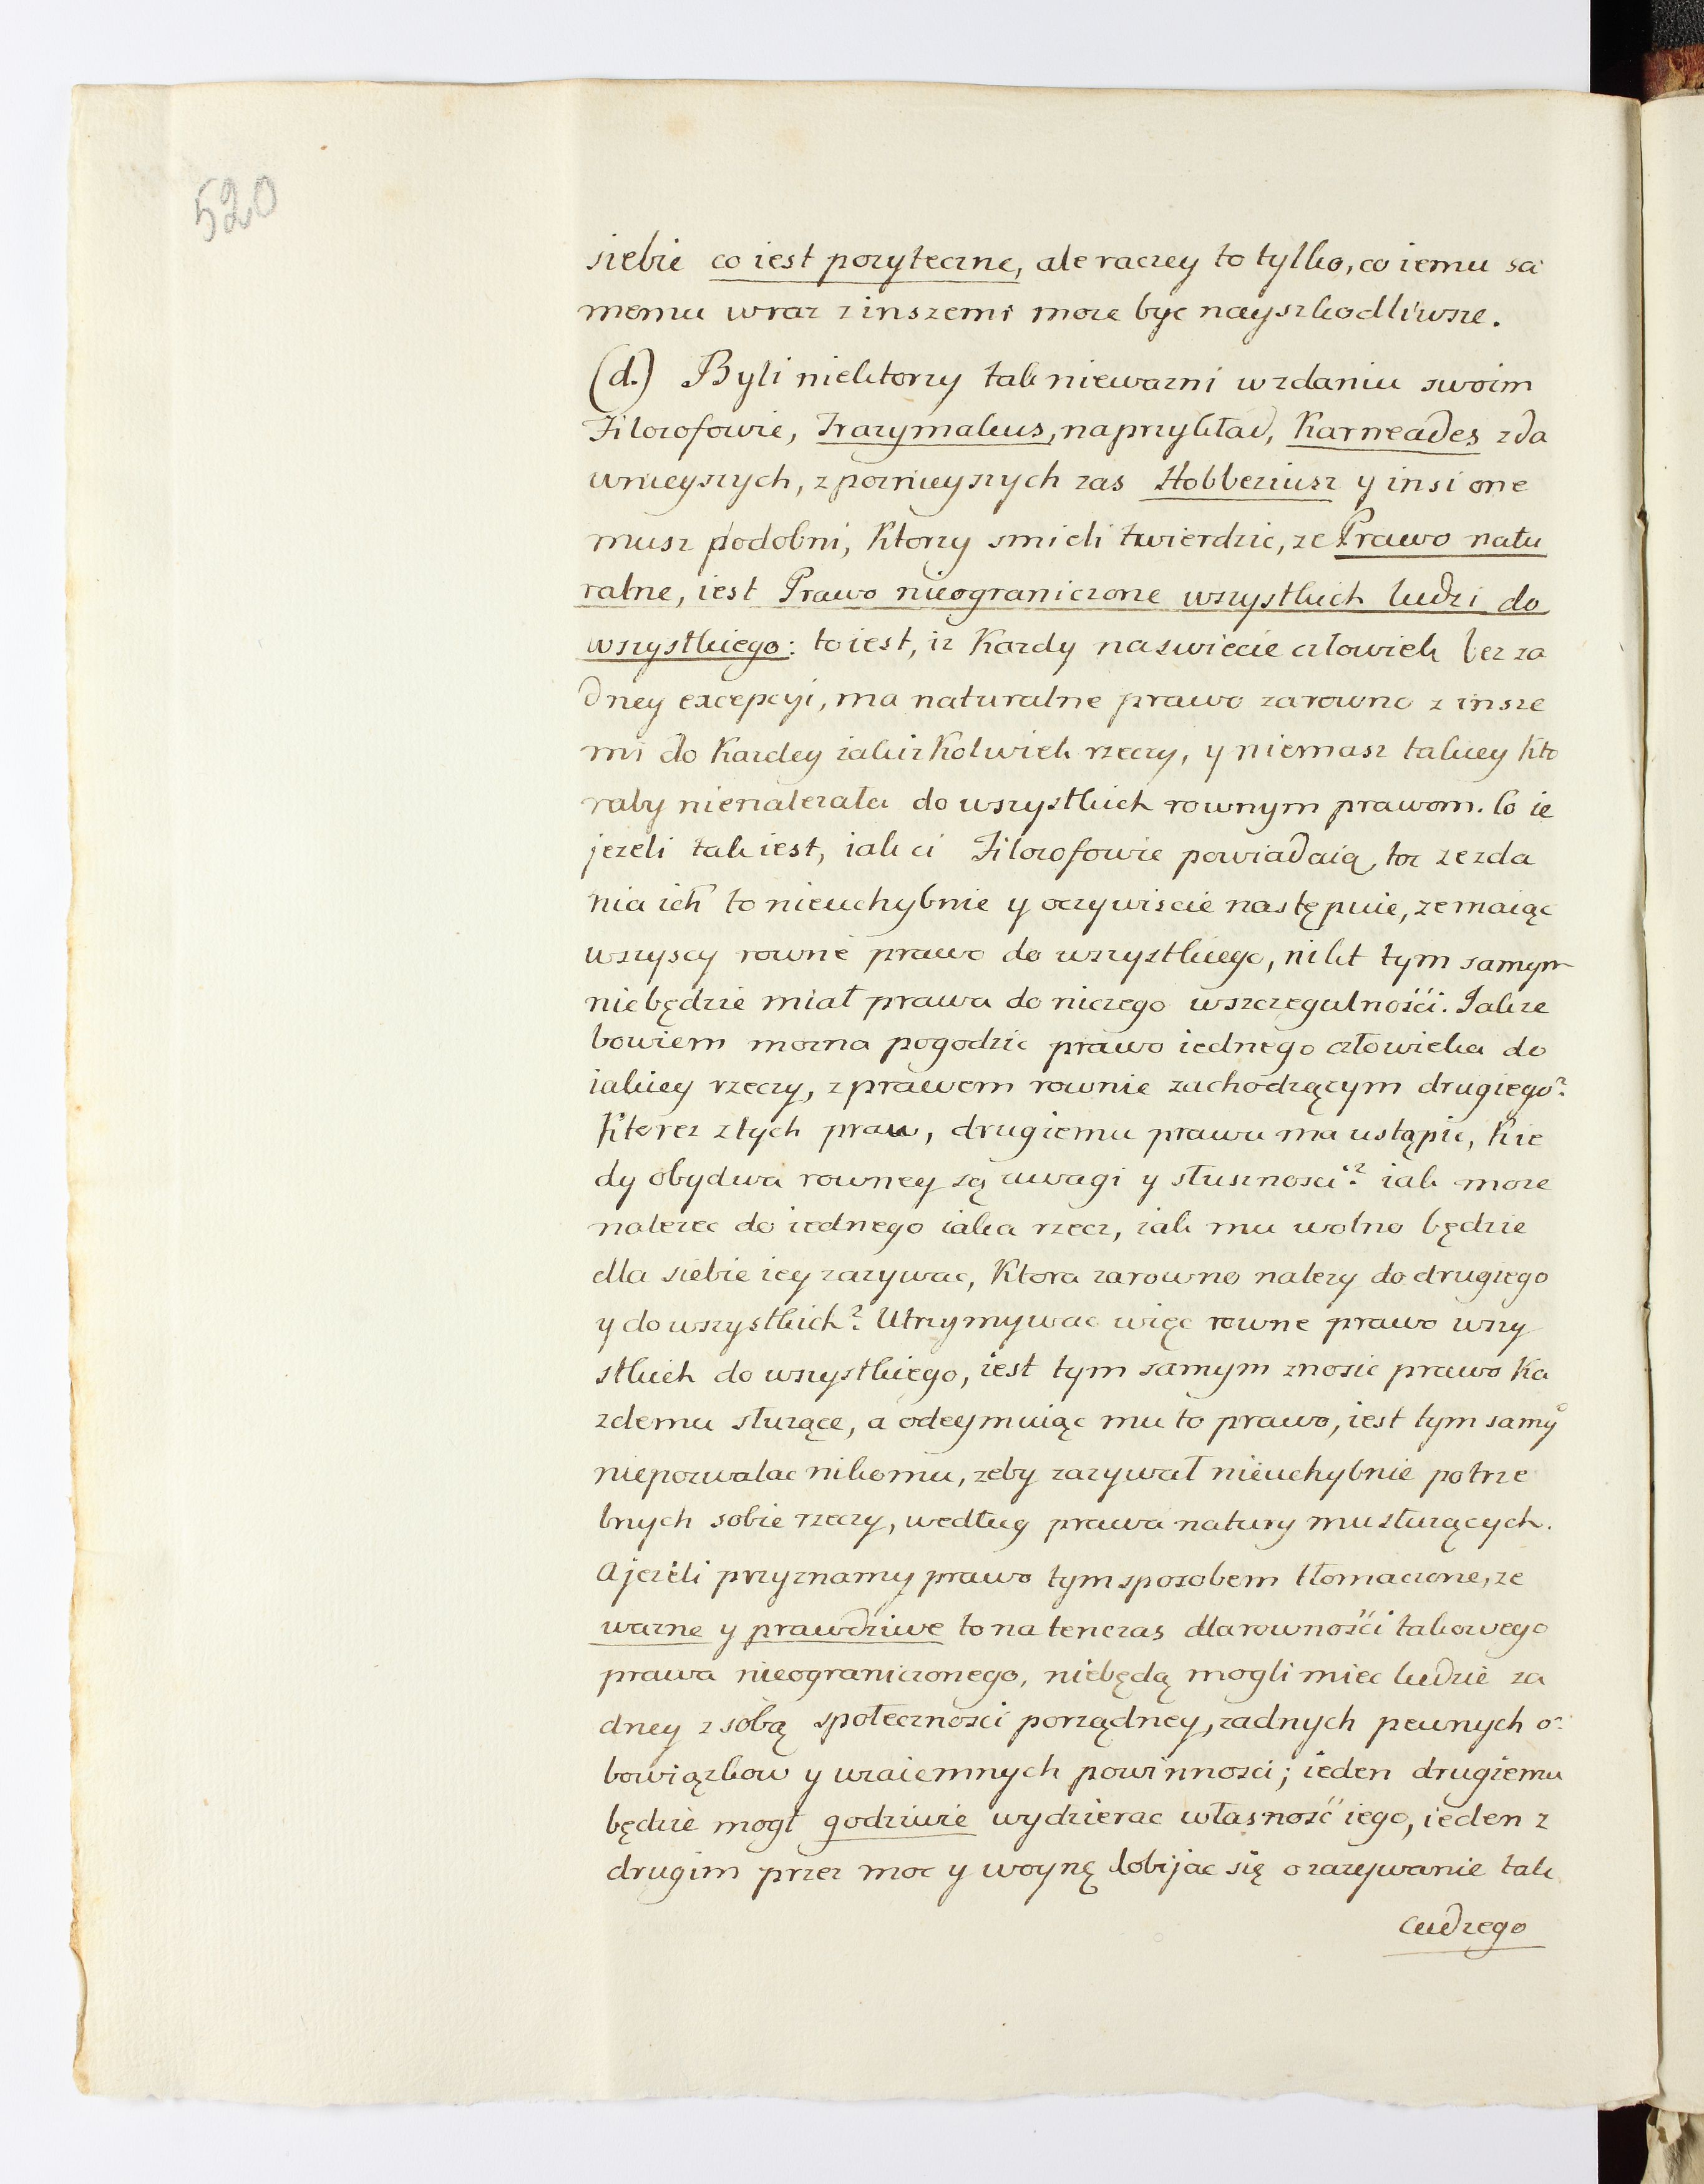 520
siebie co iest pozyteczne, ale raczey to tylko, co iemu sa
memu wraz z inszemi moze byc nayszkodliwsze.
(d.) Byli niektorzy tak niewazni w zdaniu swoim
Filozofowie, Trazymakus, naprzykład, Karneades zda
wnieyszych, z poznieyszych zas Hobbeziusz y insi one
musz podobni, Ktorzy smieli twierdzic, ze Prawo natu
ralne, iest Prawo nieograniczone wszystkich ludzi do
wszystkiego: to iest, iz Kazdy na swiecie człowiek bez za
dney excepcyi, ma naturalne prawo zarowno z insze
mi do Kazdey iakiz Kolwiek rzeczy, y niemasz takiey Kto
raby nienalezała do wszystkich rownym prawom. Co ie
jezeli tak iest, iak ci Filozofowie powiadaią, toz ze zda
nia ich to nieuchybnie y oczywiscie następuie, ze maiąc
wszyscy rowne prawo do wszystkiego, nikt tym samym
niebędzie miał prawa do niczego wszczegulności. Jakze
bowiem mozna pogodzic prawo iednego człowieka do
iakiey rzeczy, z prawem rownie zachodzącym drugiego?
Ktorez z tych praw, drugiemu prawu ma ustąpic, Kie
dy obydwa rowney są uwagi y słusznosci? iak moze
nalezec do iednego iaka rzecz, iak mu wolno będzie
dla siebie iey zazywac, Ktora zarowno nalezy do drugiego
y do wszystkich? Utrzymywac więc rowne prawo wszy
stkich do wszystkiego, iest tym samym znosic prawo Ka
zdemu słuzące, a odeymuiąc mu to prawo, iest tym samÿ
niepozwalac nikomu, zeby zazywał nieuchybnie potrze
bnych sobie rzeczy, według prawa natury mu słuzących.
A jezeli przyznamy prawo tym sposobem tłomaczone, ze
wazne y prawdziwe to na tenczas dla rowności takowego
prawa nieograniczonego, niebędą mogli miec ludzie za
dney z sobą społecznosci porządney, zadnych pewnych o:
bowiązkow y wzaiemnych powinnosci; ieden drugiemu
będzie mogł godziwie wydzierac własność iego, ieden z
drugim przez moc y woynę dobijac się o zazywanie tak
cudzego